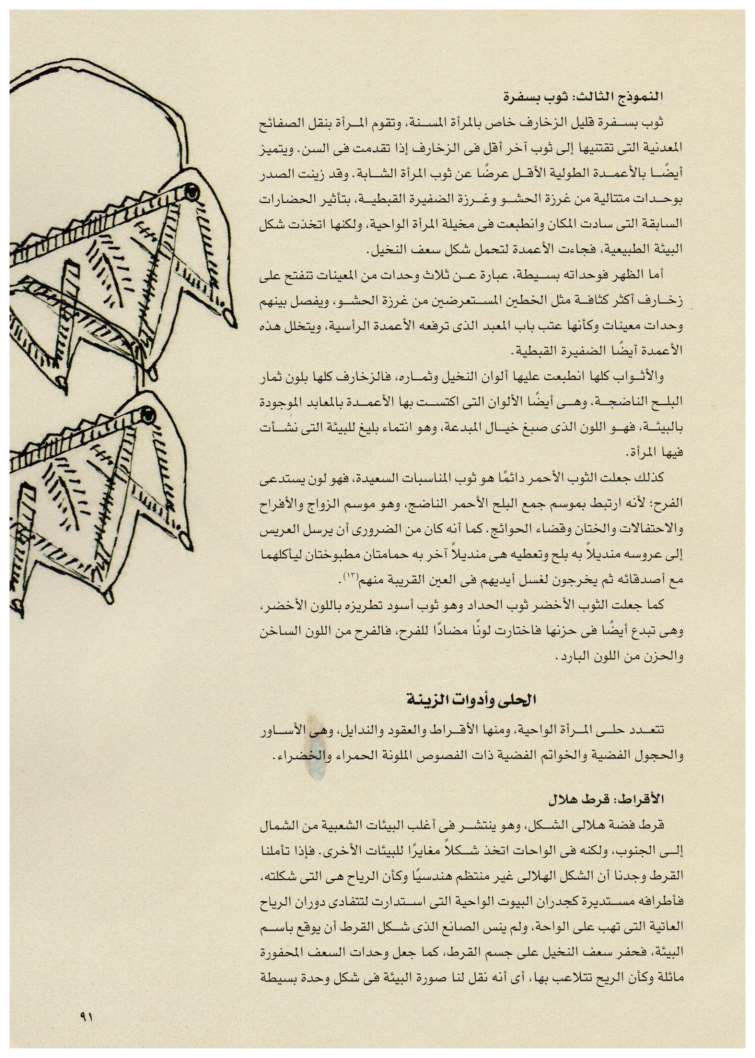 النموذج الثالث: ثوب بسفرة
ثوب بسفرة قليل الزخارف خاص بالمرأة المسنة، وتقوم المرأة بنقل الصفائح
المعدنية التى تقتنيها إلى ثوب آخر أقل فى الزخارف إذا تقدمت فى السن. ويتميز
أيضًا بالأعمدة الطولية الأقل عرضًا عن ثوب المرأة الشابة. وقد زينت الصدر
بوحدات متتالية من غرزة الحشو وغرزة الضفيرة القبطية، بتأثير الحضارات
السابقة التى سادت المكان وانطبعت فى مخيلة المرأة الواحية، ولكنها اتخذت شكل
البيئة الطبيعية، فجاءت الأعمدة لتحمل شكل سعف النخيل.
أما الظهر فوحداته بسيطة، عبارة عن ثلاث وحدات من المعينات تنفتح على
زخارف أكثر كثافة مثل الخطين المستعرضين من غرزة الحشو، ويفصل بينهم
وحدات معينات وكأنها عتب باب المعبد الذى ترفعه الأعمدة الرأسية، ويتخلل هذه
الأعمدة أيضًا الضفيرة القبطية.
والأثواب كلها انطبعت عليها ألوان النخيل وثماره، فالزخارف كلها بلون ثمار
البلح الناضجة، وهى أيضًا الألوان التى اكتست بها الأعمدة بالمعابد الموجودة
بالبيئة، فهو اللون الذى صبغ خيال المبدعة، وهو انتماء بليغ للبيئة التى نشأت
فيها المرأة.
كذلك جعلت الثوب الأحمر دائمًا هو ثوب المناسبات السعيدة، فهو لون يستدعى
الفرح؛ لأنه ارتبط بموسم جمع البلح الأحمر الناضج، وهو موسم الزواج والأفراح
والاحتفالات والختان وقضاء الحوائج. كما أنه كان من الضرورى أن يرسل العريس
إلى عروسه منديلاً به بلح وتعطيه هى منديلاً آخر به حمامتان مطبوختان ليأكلهما
مع أصدقائه ثم يخرجون لغسل أيديهم فى العين القريبة منهم(١٣).
كما جعلت الثوب الأخضر ثوب الحداد وهو ثوب أسود تطريزه باللون الأخضر،
وهى تبدع أيضًا فى حزنها فاختارت لونًا مضادًا للفرح، فالفرح من اللون الساخن
والحزن من اللون البارد.
الحلى وأدوات الزينة
تتعدد حلى المرأة الواحية، ومنها الأقراط والعقود والندايل، وهى الأساور
والحجول الفضية والخواتم الفضية ذات الفصوص الملونة الحمراء والخضراء.
الأقراط: قرط هلال
قرط فضة هلالى الشكل، وهو ينتشر فى أغلب البيئات الشعبية من الشمال
إلى الجنوب، ولكنه فى الواحات اتخذ شكلاً مغايرًا للبيئات الأخرى. فإذا تأملنا
القرط وجدنا أن الشكل الهلالى غير منتظم هندسيًا وكأن الرياح هى التى شكلته،
فأطرافه مستديرة كجدران البيوت الواحية التى استدارت لتتفادى دوران الرياح
العاتية التى تهب على الواحة، ولم ينس الصانع الذى شكل القرط أن يوقع باسم
البيئة، فحفر سعف النخيل على جسم القرط، كما جعل وحدات السعف المحفورة
مائلة وكأن الريح تتلاعب بها، أى أنه نقل لنا صورة البيئة فى شكل وحدة بسيطة
٩١